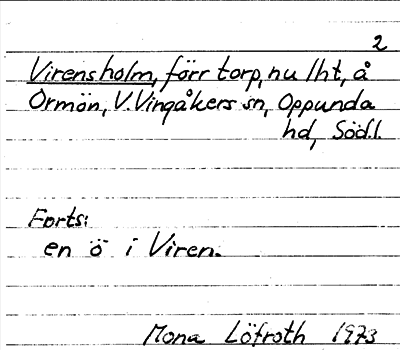 2
Virensholm, förr torp, nu lht, å
Ormön, V. Vingåkers sn, Oppunda
hd, Södl.
Forts:
en ö i Viren.
Mona Löfroth 1973